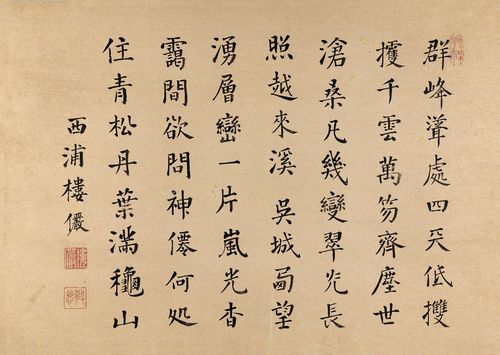 群峰聳處四天低
千雲萬笏齊塵世
滄桑凡幾變翠光長
照越來溪吳城望
湧層巒一片嵐光杳
靄間欲問神僊何処
住青松丹葉滿龝山
西浦樓儼